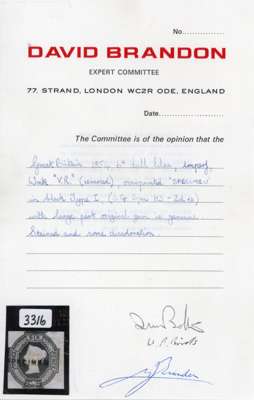 No..............
DAVID BRANDON
EXPERT COMMITTEE
77, STRAND, LONDON WC2R ODE, ENGLAND
Date..................
The Committee is of the opinion that the
Great Britain 1854, 6d dull lilac, imperf,
Wmk "V.R." (reversed), overprinted "SPECIMEN"
in black Type 1,
with large part original gum is genuine
Stained and some discoloration.
3316
SPECIMEN